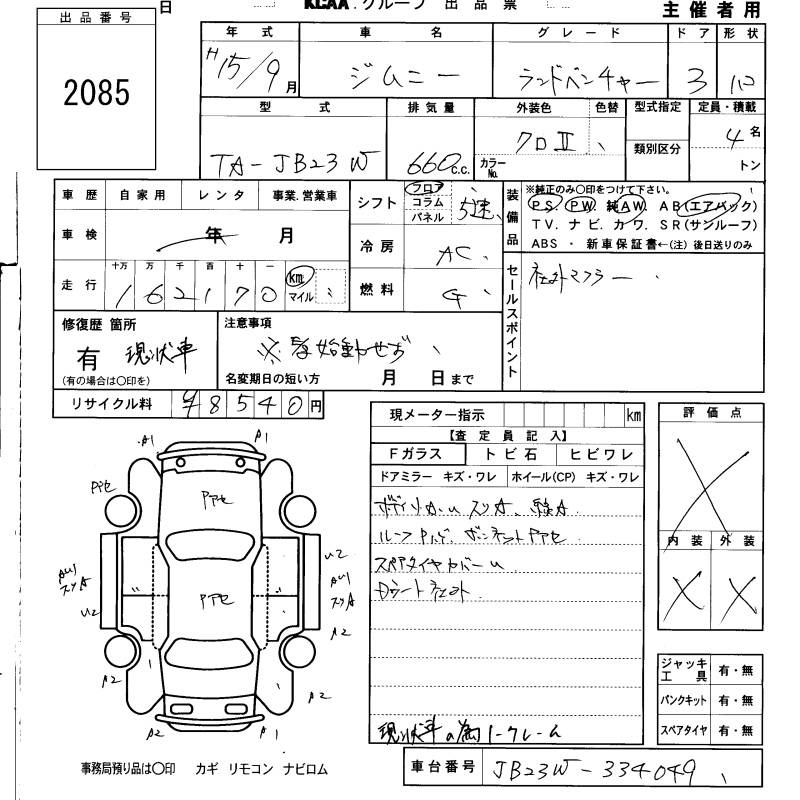 日 KCAA.グループ 出品票 主催者用
出品番号
2085
年式 車名 グレード ドア 形状
H15/9月 ジムニー ランドベンチャー 3
型式 排気量 外装色 色替 型式指定 定員・積載
TA-JB23W 660c.c. クロⅡ カラーNo. 類別区分 4名
トン
車歴 自家用 レンタ 事業.営業車
車検 年 月
走行 十万 万 千 百 十 一
162170 km マイル
シフト フロア コラム パネル 5速
冷房 AC
燃料 G
装備品 ※純正のみ〇印をつけて下さい。
PS. PW. 純AW. AB(エアバック)
TV. ナビ. カワ. SR(サンルーフ)
ABS ・ 新車保証書←(注) 後日送りのみ
セールスポイント 社外マフラー
修復歴 箇所
有 現状車
(有の場合は〇印を)
注意事項
始動せず
名変期日の短い方 月 日まで
リサイクル料 ¥8540円
現メーター指示 km
【査定員記入】
Fガラス トビ石 ヒビワレ
ドアミラー キズ・ワレ ホイール(CP) キズ・ワレ
ルーフPハゲ ボンネットPアセ
スペアタイヤカバーU
Dシート
現状車の為ノークレーム
評価点
内装 外装
ジャッキ工具 有・無
パンクキット 有・無
スペアタイヤ 有・無
A1 A1
Pアセ Pアセ
U2
スリA スリA
Pアセ
U2 A2
A2 A2
A2 A1
事務局預り品は〇印 カギ リモコン ナビロム
車台番号 JB23W-334049